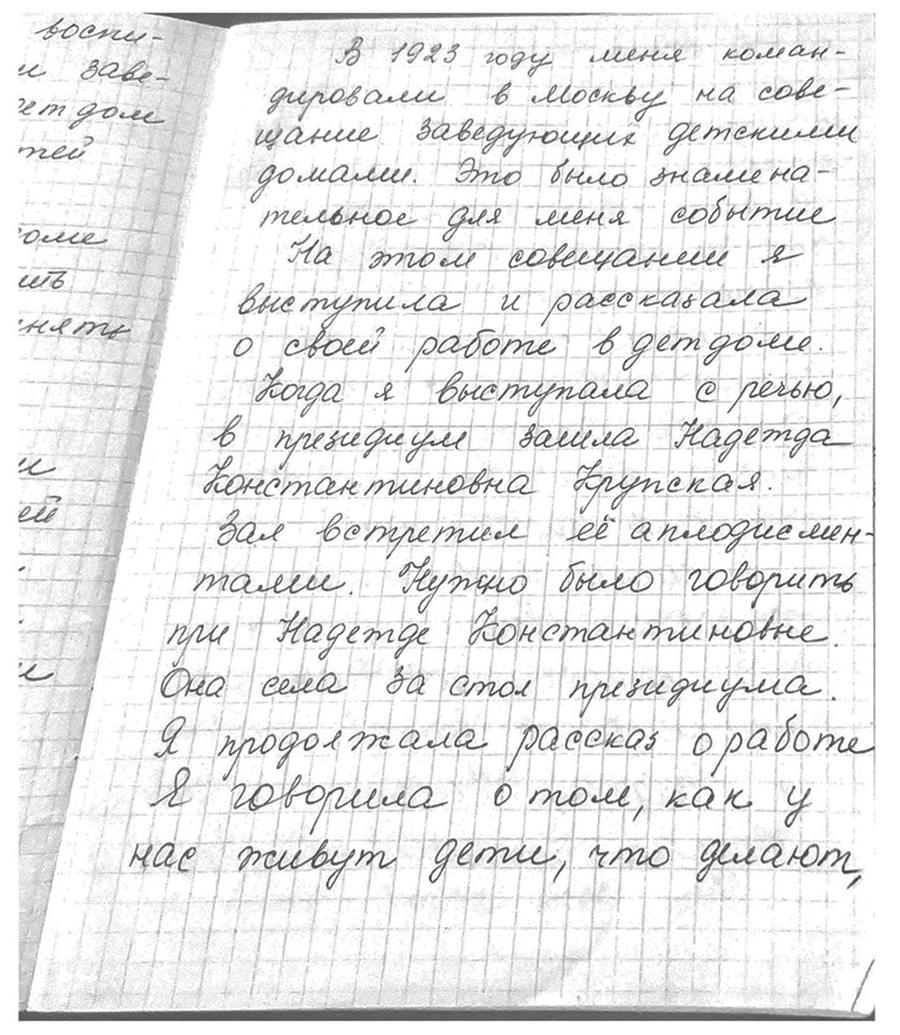 воспи-
и заве-
ет дом
тей
оме
ить
нять
и
ей
и
В 1923 году меня коман-
дировали в Москву на сове-
щание заведующих детскими
домами. Это было знамена-
тельное для меня событие
На этом совещании я
выступила и рассказала
о своей работе в детдоме.
Когда я выступала с речью,
в президиум зашла Надежда
Константиновна Крупская.
Зал встретил её аплодисмен-
тами. Нужно было говорить
при Надежде Константиновне.
Она села за стол президиума.
Я продолжала рассказ о работе
Я говорила о том, как у
нас живут дети, что делают,